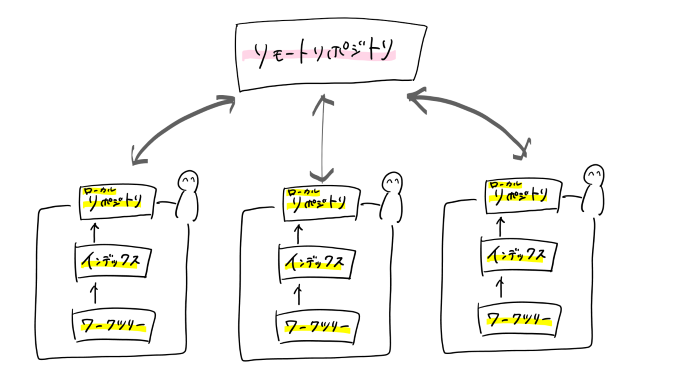 リモートリポジトリ
ローカル
リポジトリ
インデックス
ワークツリー
ローカル
リポジトリ
インデックス
ワークツリー
ローカル
リポジトリ
インデックス
ワークツリー